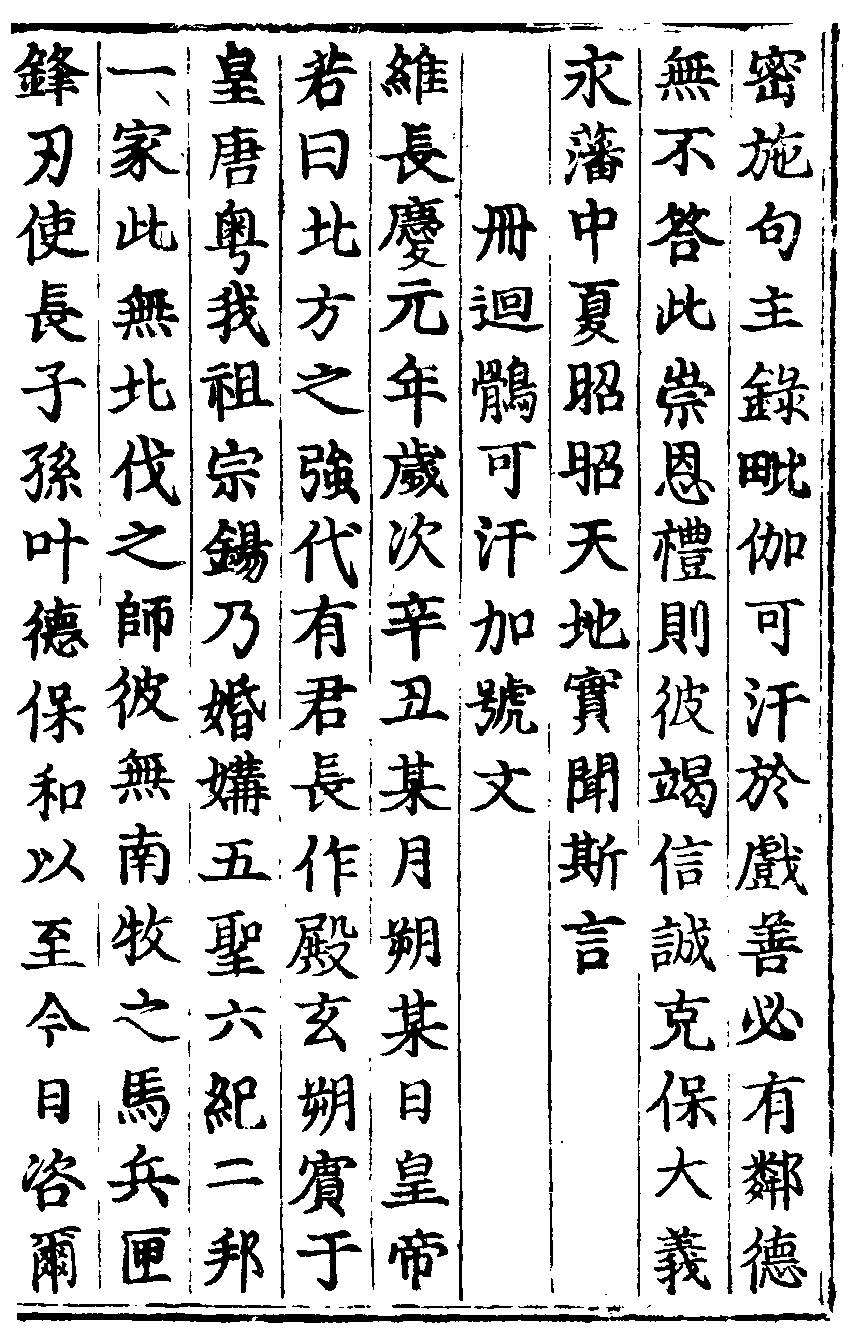 密施句主錄毗伽可汗於戲善必有鄰德
無不答此崇恩禮則彼竭信誠克保大義
永藩中夏昭昭天地實聞斯言
冊迴鶻可汗加號文
維長慶元年歲次辛丑某月朔某日皇帝
若曰北方之強代有君長作殿玄朔賓于
皇唐粤我祖宗錫乃婚媾五聖六紀二邦
一家此無北伐之師彼無南牧之馬兵匣
鋒刃使長子孫叶德保和以至今日咨爾